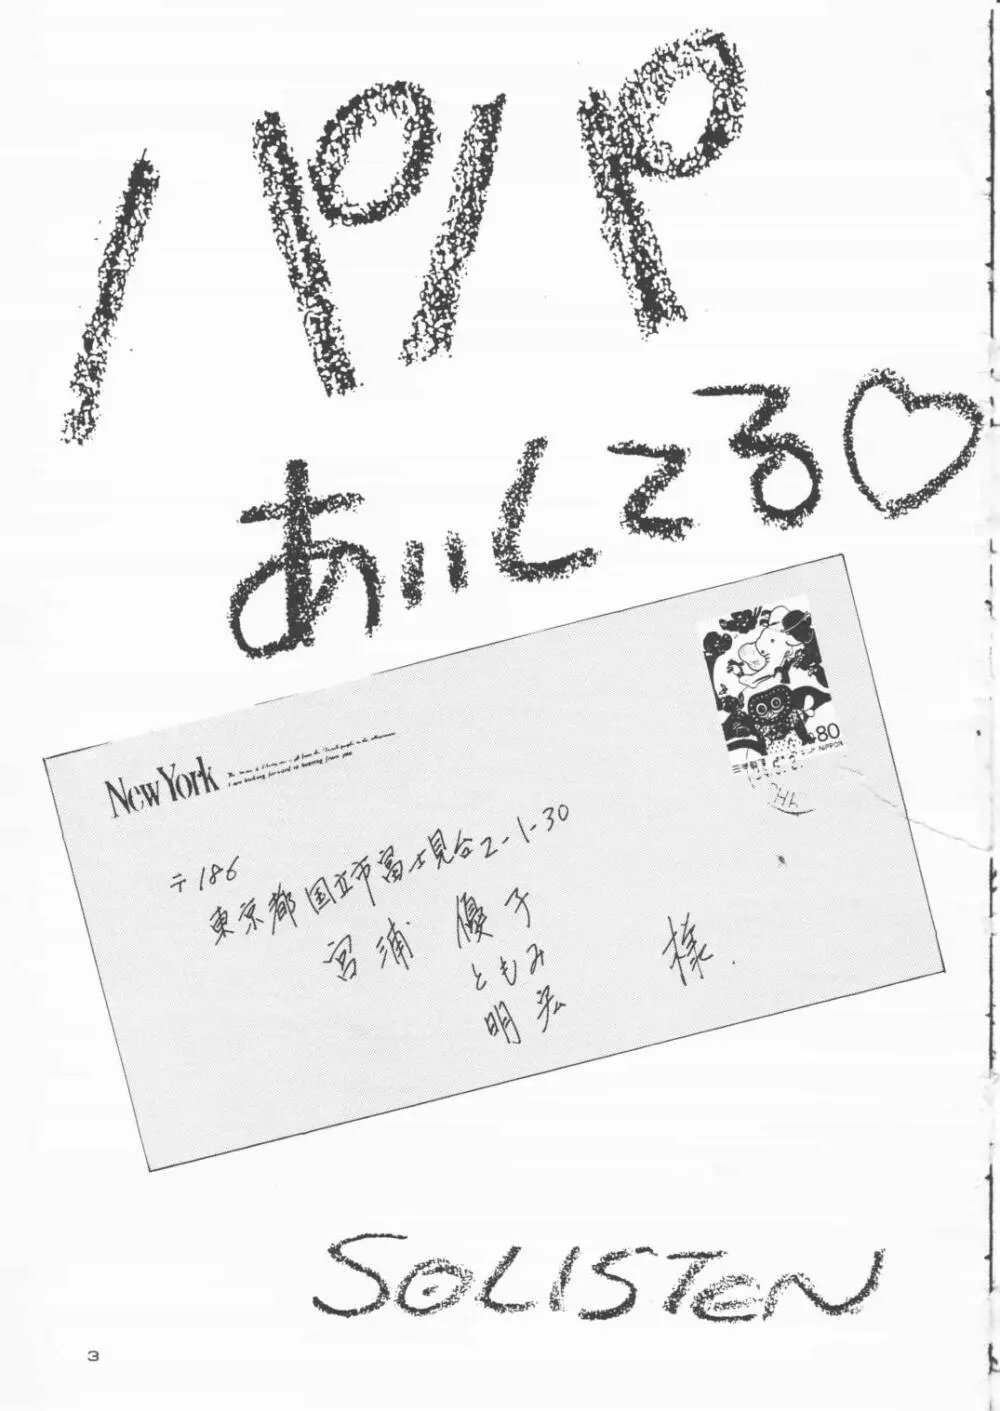 パパ
あいしてる♡
80
NIPPON
New York
〒186
東京都国立市富士見台2-1-30
宮浦 優子
ともみ
明宏 様
SOLISTEN
3